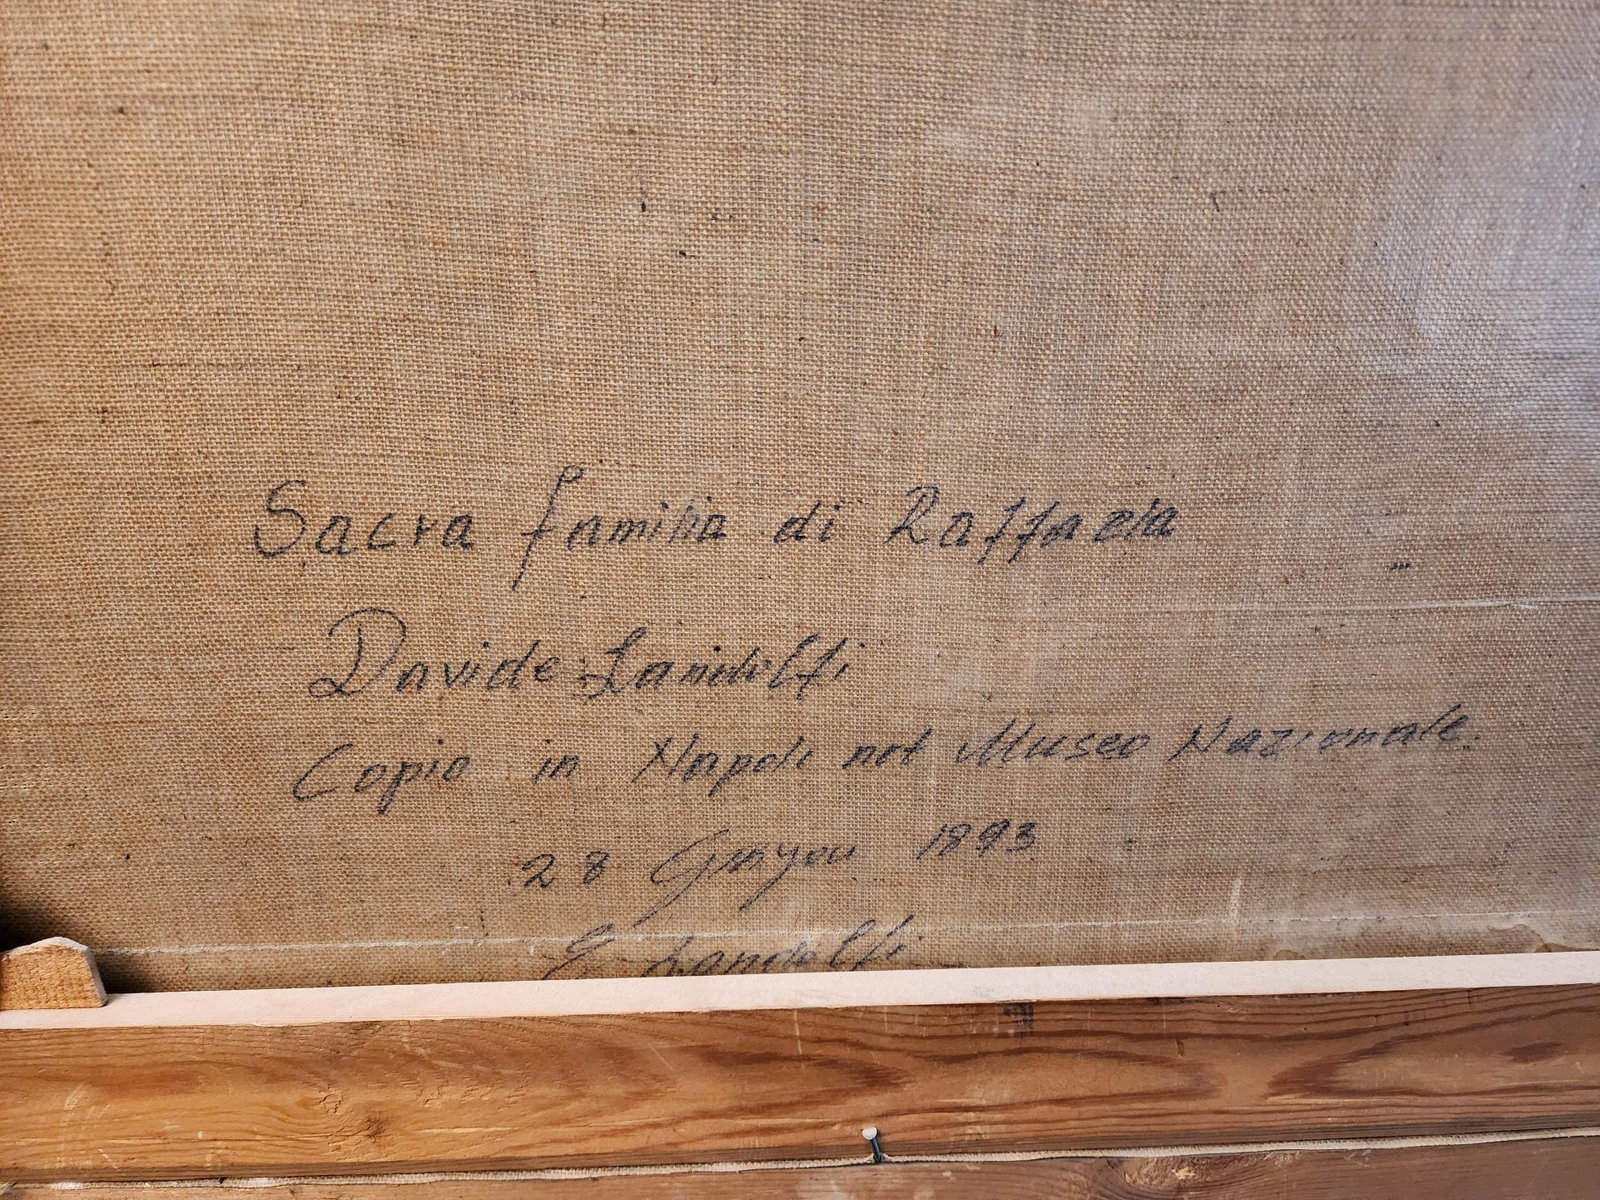 Sacra familia di Raffaela
Davide Landolfi
Copia in Napoli nel Museo Nazionale.
28 1893
Landolfi